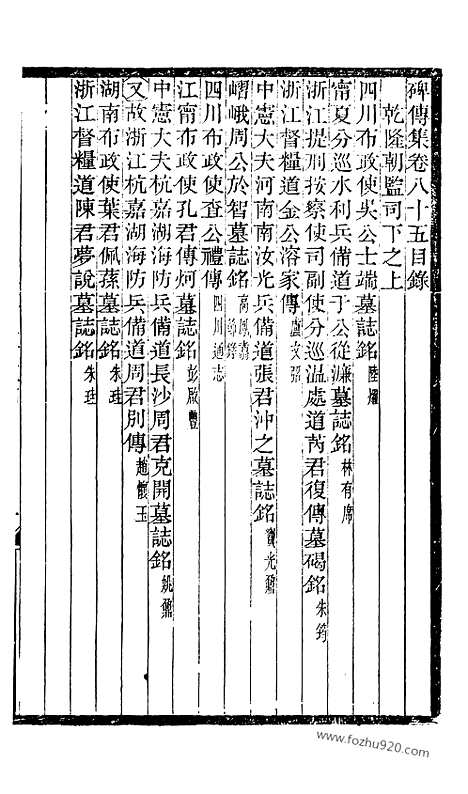 碑傳集卷八十五目錄
乾隆朝監司下之上
四川布政使吳公士端墓誌銘 陸燿
甯夏分巡水利兵備道于公從濂墓誌銘 林有席
浙江提刑按察使司副使分巡温處道芮君復傳墓碣銘 朱筠
浙江督糧道金公溶家傳 盧文弨
中憲大夫河南南汝光兵備道張君沖之墓誌銘 竇光鼐
嶍峨周公於智墓誌銘
四川布政使查公禮傳 四川通志
江甯布政使孔君傳炣墓誌銘 彭啟豐
中憲大夫杭嘉湖海防兵備道長沙周君克開墓誌銘 姚鼐
又故浙江杭嘉湖海防兵備道周君別傳 趙懷玉
湖南布政使葉君佩蓀墓誌銘 朱珪
浙江督糧道陳君夢說墓誌銘 朱珪
www.fozhu920.com